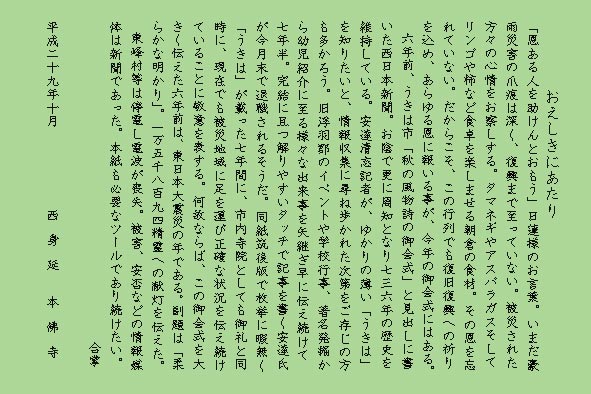 おえしきにあたり
「恩ある人を助けんとおもう」日蓮様のお言葉。いまだ豪
雨災害の爪痕は深く、復興まで至っていない。被災された
方々の心情をお察しする。タマネギやアスパラガスそして
リンゴや柿など食卓を楽しませる朝倉の食材。その恩を忘
れていない。だからこそ、この行列でも復旧復興への祈り
を込め、あらゆる恩に報いる事が、今年の御会式にはある。
六年前、うきは市「秋の風物詩の御会式」と見出しに書
いた西日本新聞。お陰で更に周知となり七三六年の歴史を
維持している。安達清志記者が、ゆかりの薄い「うきは」
を知りたいと、情報収集に尋ね歩かれた次第をご存じの方
も多かろう。旧浮羽郡のイベントや学校行事、著名発掘か
ら幼児紹介に至る様々な出来事を矢継ぎ早に伝え続けて
七年半。完結に且つ解りやすいタッチで記事を書く安達氏
が今月末で退職されるそうだ。同紙筑後版で枚挙に暇無く
「うきは」が載った七年間に、市内寺院としても御礼と同
時に、現在でも被災地域に足を運び正確な状況を伝え続け
ていることに敬意を表する。何故ならば、この御会式を大
きく伝えた六年前は、東日本大震災の年である。副題は「柔
らかな明かり」。一万五千八百九四精霊への献灯を伝えた。
東峰村等は停電し電波が喪失。被害、安否などの情報媒
体は新聞であった。本紙も必要なツールであり続けたい。
合掌
平成二十九年十月　西身延　本佛寺